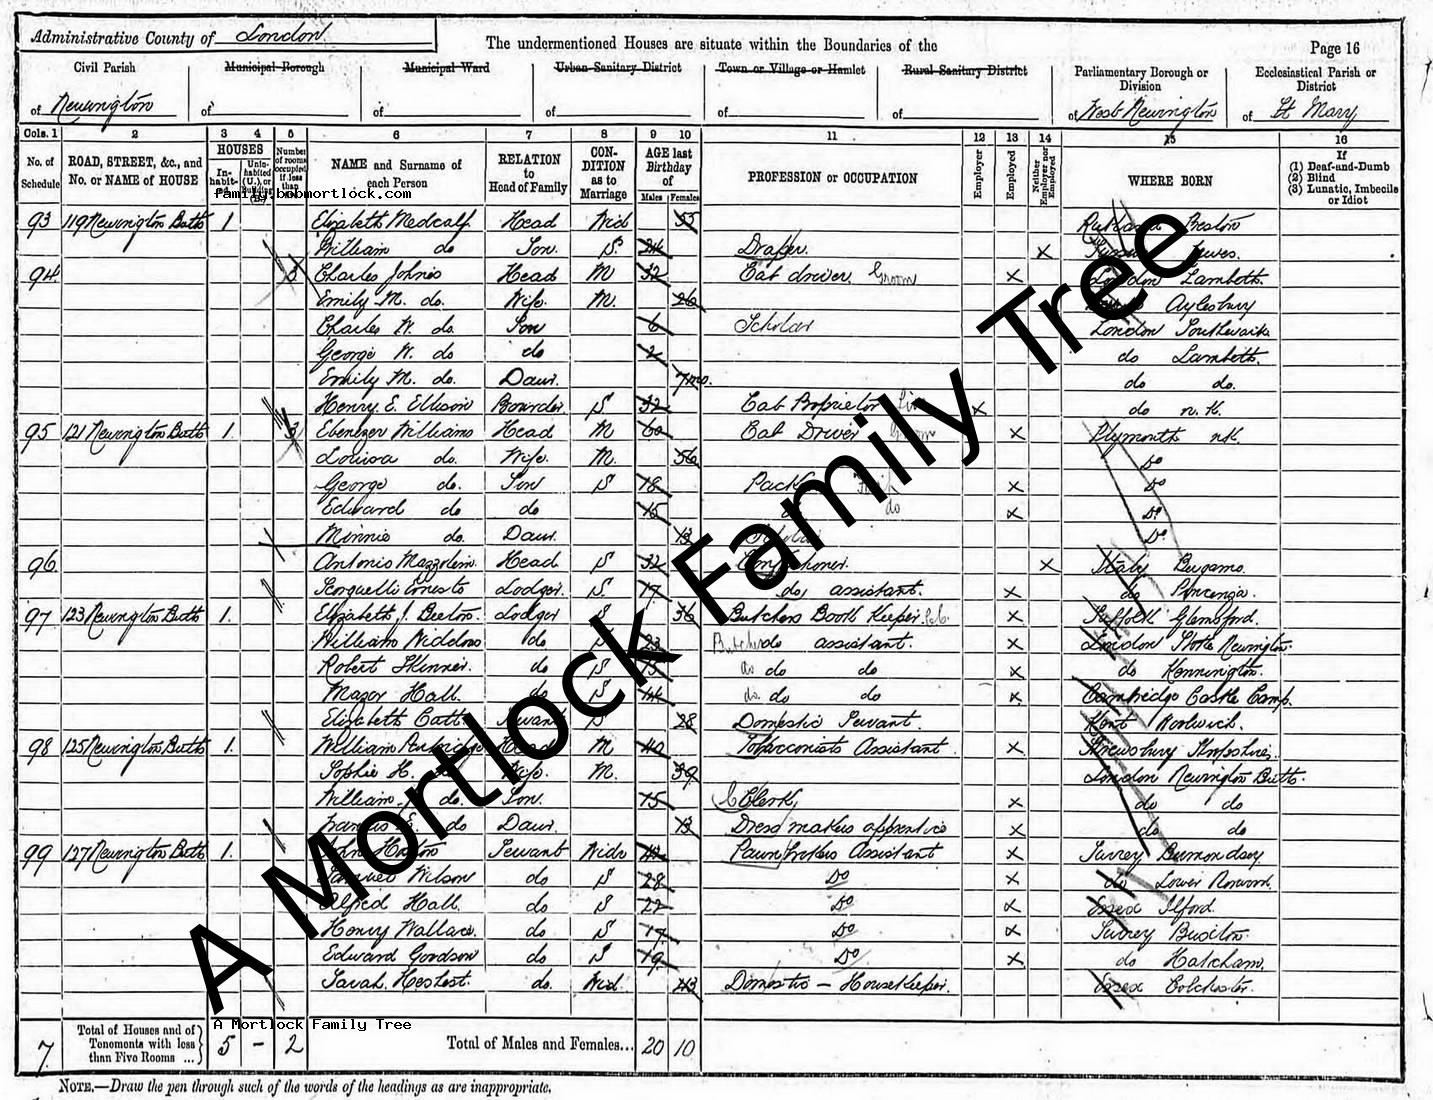 Administrative County of London
The undermentioned Houses are situate within the Boundaries of the
Page 16
Civil Parish
of Newington
Municipal Borough
of
Municipal Ward
of
Urban Sanitary District
of
Town or Village or Hamlet
of
Rural Sanitary District
of
Parliamentary Borough or Division
of West Newington
Ecclesiastical Parish or District
of St Mary
Cols. 1 2 3 4 5 6 7 8 9 10 11 12 13 14 15 16
No. of Schedule
ROAD, STREET, &c., and No. or NAME of HOUSE
HOUSES
In-habit-ed
Unin-habited (U.) or Building (B.)
Number of rooms occupied if less than
NAME and Surname of each Person
RELATION to Head of Family
CON-DITION as to Marriage
AGE last Birthday of
Males Females
PROFESSION or OCCUPATION
Employer
Employed
Neither Employer nor Employed
WHERE BORN
If
(1) Deaf-and-Dumb
(2) Blind
(3) Lunatic, Imbecile or Idiot
family.bobmortlock.com
93 119 Newington Butts 1 Elizabeth Medcalf Head Wid 55 Rutland Preston
William do Son. S. 24 Draper. x Lewes.
94 3 Charles Johns Head M 32 Cab driver. Groom x London Lambeth.
Emily M. do. Wife. M. 26 Aylesbury
Charles W. do. Son 6 Scholar London Southwark
George W. do do 2 do Lambeth.
Emily M. do. Daur. 7mo. do do.
Henry E. Ellison Boarder S 32 Cab Proprietor x do n.K.
95 121 Newington Butts 1. 3 Ebenezer Williams Head M 60 Cab Driver Groom x Plymouth nK.
Louisa do. Wife. M. 56 Do
George do. Son S 18 x Do
Edward do do 15 do x Do
Minnie do. Daur. 13 Scholar Do
96 Antonio Mazzolein. Head S 32 Confectioner. x Italy Bergamo.
Lodger. S 17 do. assistant. x do
97 123 Newington Butts 1. Elizabeth J. Beeton. Lodger S 36 Butchers Book Keeper x Suffolk Glemsford.
William do S 23 Butcher do assistant. x London Stoke Newington.
Robert Skinner. do S do do do x do Kennington.
Mazor Hall. do S do. do do x Cambridge Castle Camp.
Elizabeth Catt. Servant S 28 Domestic Servant. Kent Woolwich.
98 125 Newington Butts 1. William Head M 40 Tobacconists Assistant. x Shrewsbury Shropshire.
Sophie H. Wife. M. 39 London Newington Butts.
William do. Son. 15 Clerk x do do
Francis E. do Daur. 13 Dress makers apprentice x do do
99 127 Newington Butts 1. John Servant Widr Pawnbrokers Assistant x Surrey Bermondsey
Samuel Wilson do S 28 Do x do Lower Norwood.
Alfred Hall. do S 22 Do x Essex Ilford.
Henry Wallace. do S 17 Do x Surrey Brixton.
Edward Goodson do S 19 Do x do Hatcham.
Sarah do. Wid. 43 Domestic - Housekeeper. Essex Colchester.
7. Total of Houses and of Tenements with less than Five Rooms ... 5 - 2 Total of Males and Females... 20 10
A Mortlock Family Tree
NOTE.—Draw the pen through such of the words of the headings as are inappropriate.
A Mortlock Family Tree